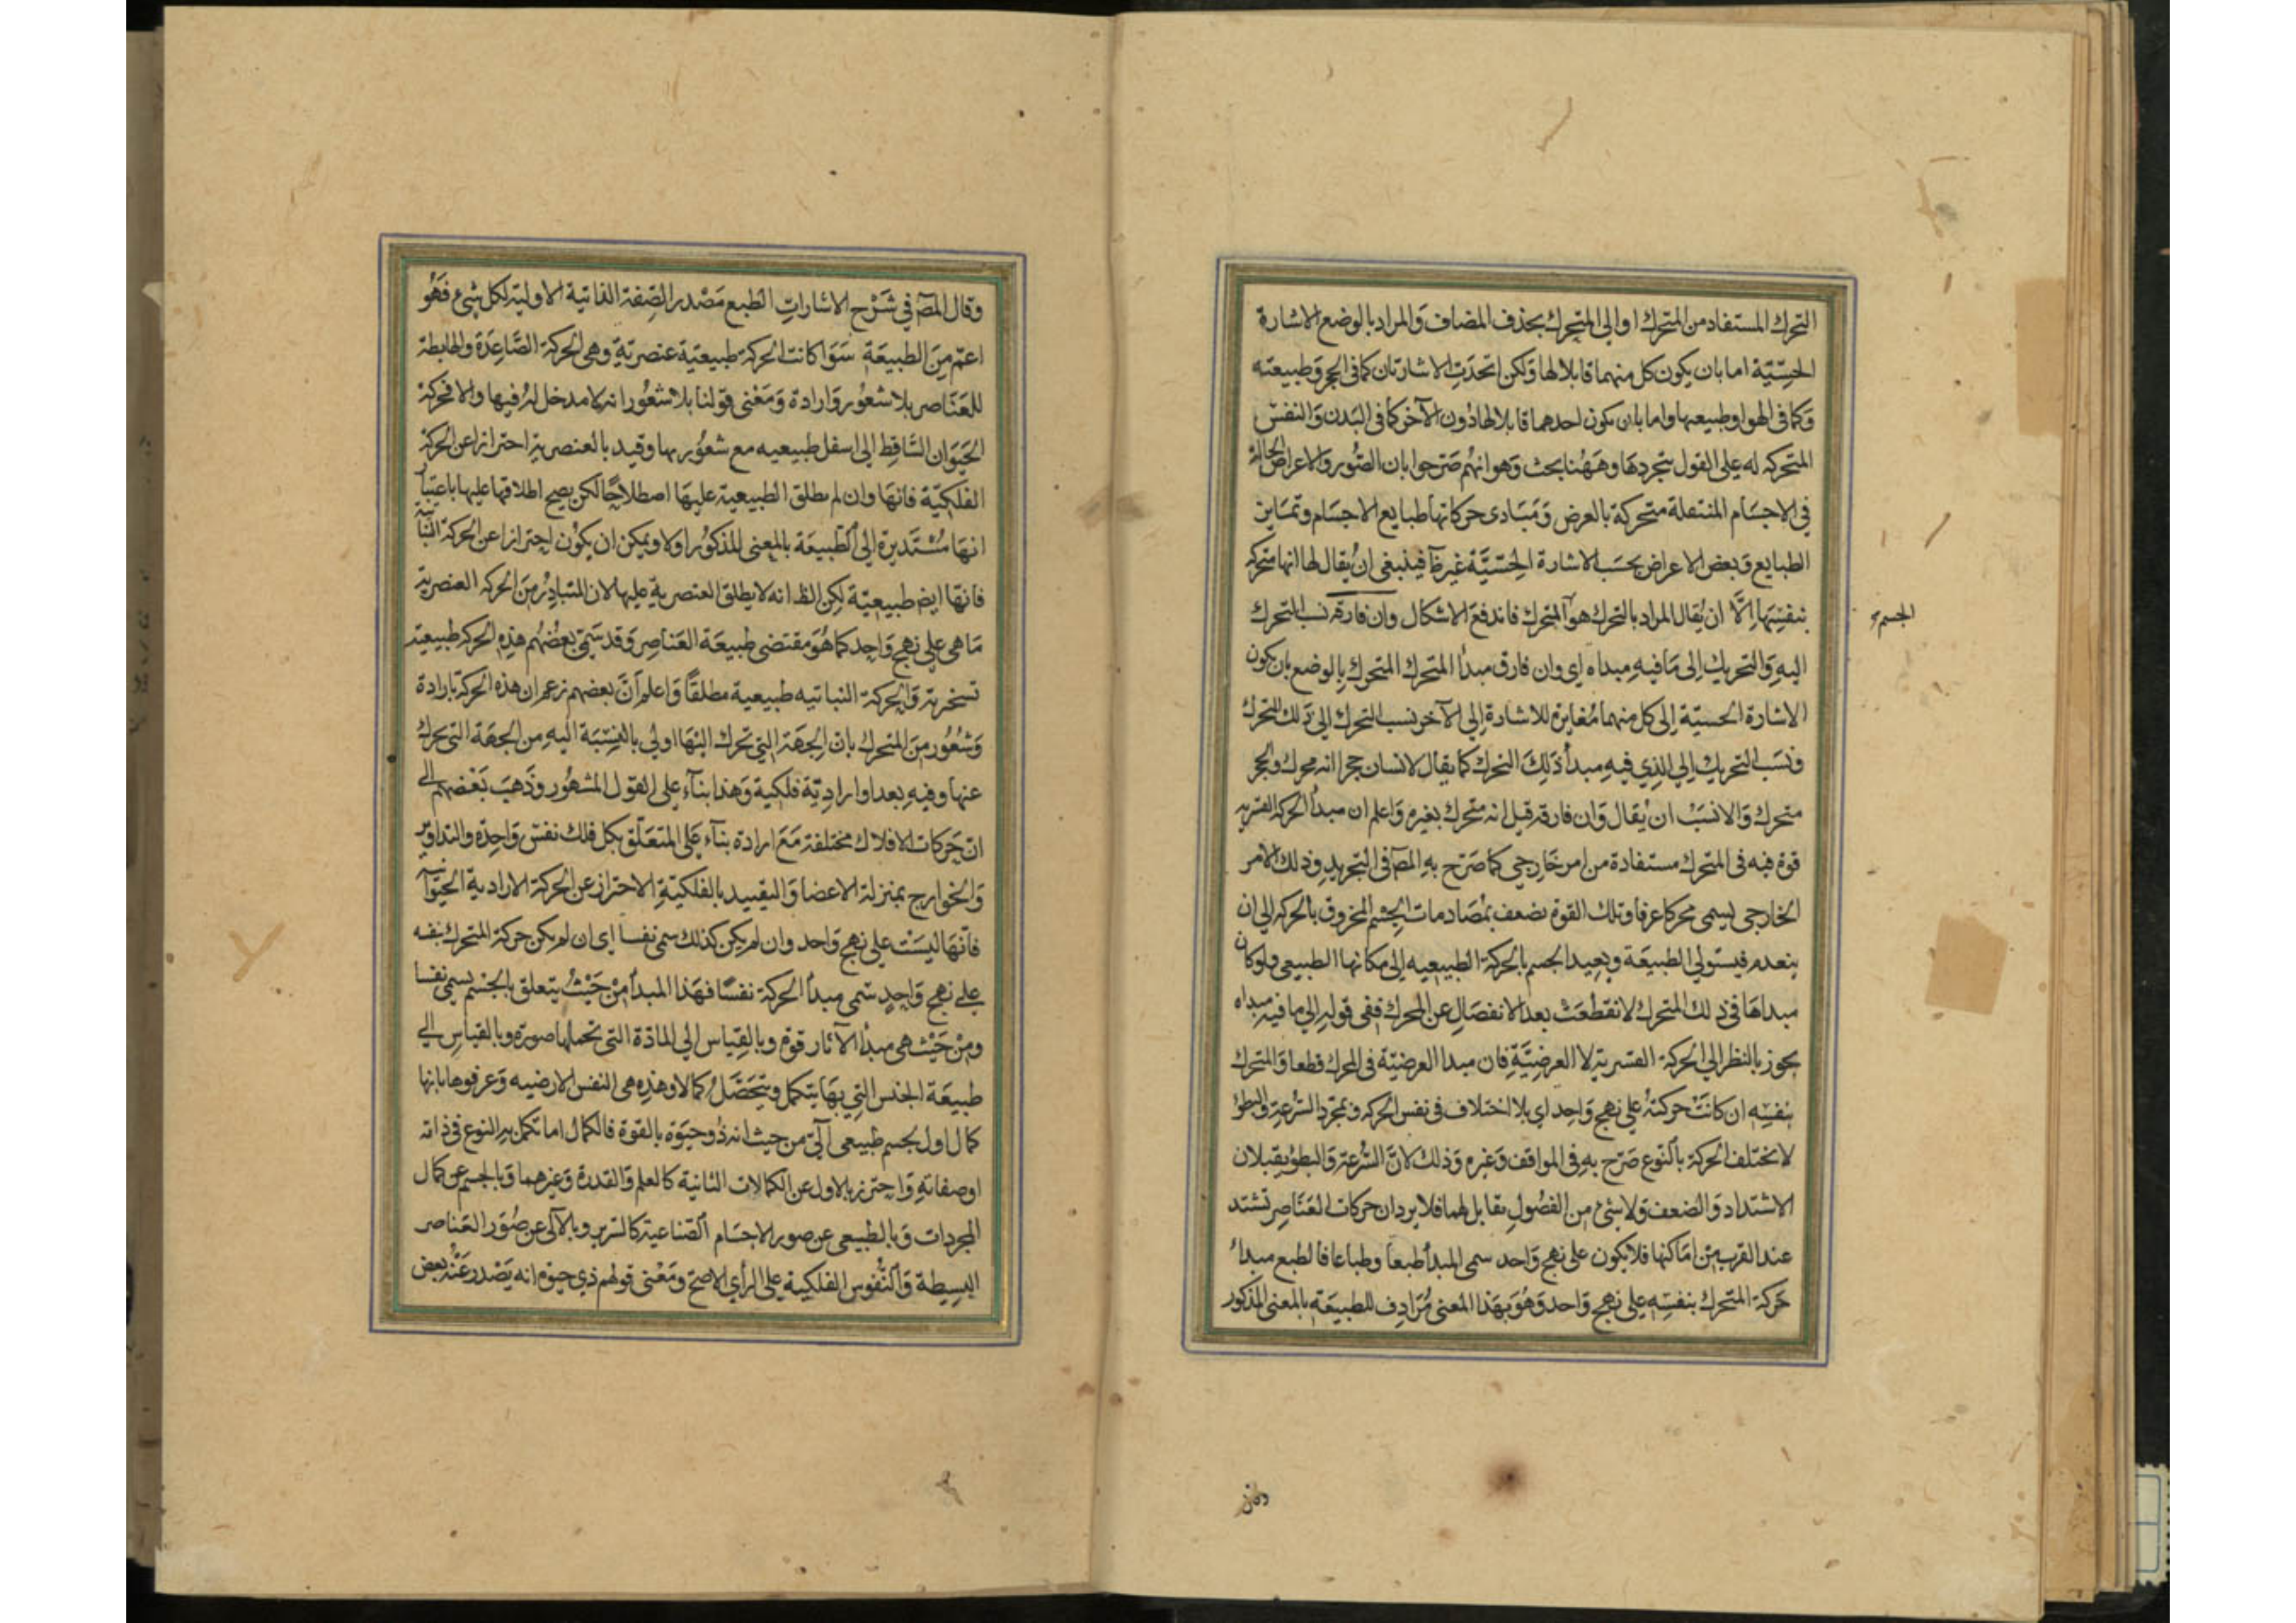 التحرك المستفاد من المتحرك او الى المتحرك بحذف المضاف وَالمراد بالوضع الاشارة
الحسِّيّة اما بان يكون كل منهما قابلا لها وَلكن اتحدَتِ الاشارتان كما فى الحجر وَطبيعته
وَكما فى الهوا وطبيعها واما بان يكون احدهما قابلا لها دُون الآخر كما فى البَدن وَالنفس
المتحركه له على القول بتجردهَا وهٰهنا بحث وَهو انهُم صَرحوا بان الصُّور وَالاعراض الحالة
فى الاجسَام المنتقلة متحركة بالعرض وَمَبَادى حركاتها طبايع الاجسَام وتمَايز
الطبايع وَبعض الاعراض بحسَب الاشارة الحِسّيَّة غير ظ فينبغى ان يُقال لها انها متحركه
بنفسِهَا اِلّا ان يُقال المراد بالتحرك هو المتحرك فاندفع الاشكال وان فارقه نسب التحرك
الجسم
اليهِ وَالتحريك اِلى مَا فيهِ مبداه اى وان فارق مبدأ المتحرك المتحرك بالوضع بان يكون
الاشارة الحسيّة اِلى كل منهما مُغايرة للاشارة اِلى الآخر نسب التحرك الى ذَلك المتحرك
ونسَب التحريك اِلى الذِي فيهِ مبدأ ذَلِكَ التحرك كما يقال لانسان جر حجرا انه محرك والحجر
متحرك وَالانسَبْ ان يُقال وَان فارقه قيل انه متحرك بغيره وَاعلم ان مبدأ الحركة القسريه
قوة فيه فى المتحرك مستفادة من امر خَارجى كما صَرّح بهِ المص فى التجريدِ وذلك الامر
الخارجى يسمى محركا عرفا وتلك القوة تضعف بمُصَادمات الجسم المخروق بالحركه الى ان
ينعدم فيستولى الطبيعَة وَيعيد الجسم بالحركة الطبيعيه اِلى مكانها الطبيعى ولو كان
مبداهَا فى ذلك المتحرك لانقطعَتْ بعد الانفصَالِ عن المحرك ففى قولِه الى ما فيه مبداه
تجوز بالنظر الى الحركة القسرية لا العرضيَّةِ فان مبدا العرضيّة فى المحرك قطعا وَالمتحرك
بنفسِهِ ان كانَتْ حركتهُ على نهج وَاحِد اى بلا اختلاف فى نفس الحركه وبمجرّد السُّرعة والبطؤ
لا تختلف الحركة بالنوع صَرّح بهِ فى المواقف وَغيره وَذلك لانَّ السُّرعة وَالبطؤ يقبلان
الاشتداد وَالضعف وَلا شئ من الفصُولِ بقابل لهما فلا يرد ان حركات العَنَاصِر تشتد
عند القرب من اماكنها فلا يكون على نهج وَاحد سمى المبدأ طبعا وطباعا فالطبع مبداء
حَركة المتحرك بنفسِهِ على نهج وَاحد وَهُوَ بهَذا المعنى مُرَادِف للطبيعَةِ بالمعنى المذكور
وقال المص في شَرْح الاشاراتِ الطبع مَصْدر الصِّفة الذاتية الاولية لكل شئ فَهُو
اعمّ مِنَ الطبيعَةِ سَوَا كانت الحركة طبيعيّة عنصريّة وهى الحركة الصَّاعِدَة والهابطة
للعَنَاصر بلا شعُور وَارادة وَمَعْنى قولنا بلا شعُور انه لا مدخل لهُ فيها والا فحركة
الحَيَوَان السَّاقِط اِلى اسفل طبيعيه مع شعُور بها وقيد بالعنصرية احترازا عن الحركة
الفلكيّة فانهَا وان لم يطلق الطبيعية عليهَا اصطلاحًا لكن يصح اطلاقها عليها باعتبار
انهَا مُسْتَديرة اِلى الطّبيعَة بالمعنى المذكوُر اولا ويمكن ان يكون احترازا عن الحركة النباتية
فانهَا ايض طبيعيّة لكن الظ انه لا يطلق العنصرية عليها لان المتبادِرُ مِنَ الحركه العنصرية
مَا هى على نهج وَاحِد كما هُوَ مقتضى طبيعَة العَنَاصِر وَقد سَمّى بعضُهُم هٰذِهِ الحركه طبيعيّة
تسخريّة وَالحركة النباتيه طبيعية مطلقًا وَاعلم اَنّ بعضهم زعم ان هذه الحركة بارادة
وَشعُور مِنَ المتحرك بان الجهَة التي تحرك اليهَا اولى بالنِسْبَة اليهِ من الجهَة التى تحرك
عنها وفيه بعد او اراديّة فلكية وَهَذا بنآء على القول المشهُور وذَهبَ بَعْضهم الى
ان حَركات الافلاك مختلفة مَعَ ارادة بنآء عَلى المتعَلّق بكل فلك نفسٌ وَاحِدة والتداوير
وَالخوارج بمنزلة الاعضا وَالتقييد بالفلكيّةِ الاحتراز عن الحركة الارادية الحيوانية
فانّهَا ليسَتْ على نهج وَاحد وان لم يكن كذلك سمى نفسا اى ان لم يكن حركة المتحرك بنفسه
على نهج وَاحِدٍ سمى مبدأ الحركة نفسًا فهَذا المبدأ مِنْ حَيْثُ يتعلق بالجسْم يسمى نفسا
ومِنْ حَيْث هى مبدأ الآثار قوة وبالقِيَاس اِلى المادّة التى تحملها صورة وبالقياسِ الى
طبيعَة الجنس التي بهَا يتكمل ويتحَصَّل كمالا وهٰذِهِ هى النفس الارضيه وَعرفوهَا بانها
كمال اول لجسم طبيعى آلى من حيث انه ذُو حيَوة بالقوة فالكمال اما تكمل به النوع فى ذاته
او صفاتهِ وَاحترز بالاول عن الكمالات الثانية كالعلم وَالقدرة وَغيرهما وَبالجسم عن كمال
المجردات وَبالطبيعى عن صور الاجسَام الصّناعية كالسّرير وبالآلى عن صُوَر العَناصر
البسِيطة وَالنُّفوس الفلكية على الرأي الاصح ومَعْنى قولهم ذي حيوة انه يَصْدر عَنْه بعض